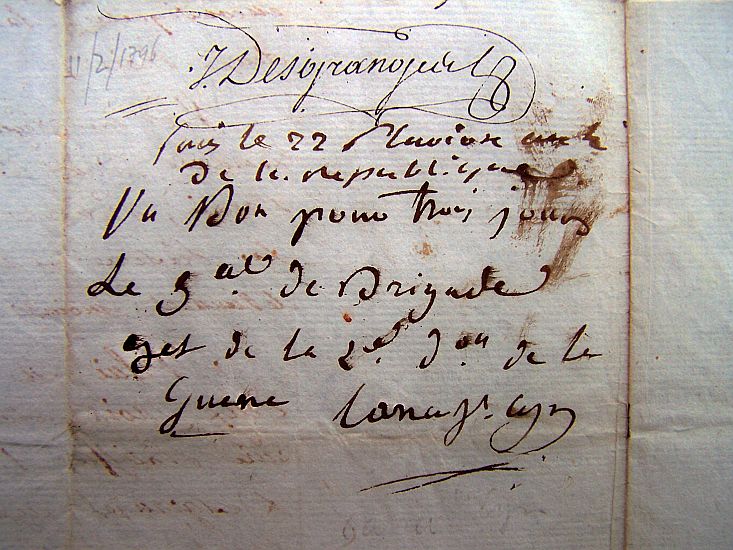 11/2/1796
J. Desgranges
le 22 Pluviose an 4
de la republique
Vu Bon pour trois jours
Le gal de Brigade
de la 2e don de la
Guerre